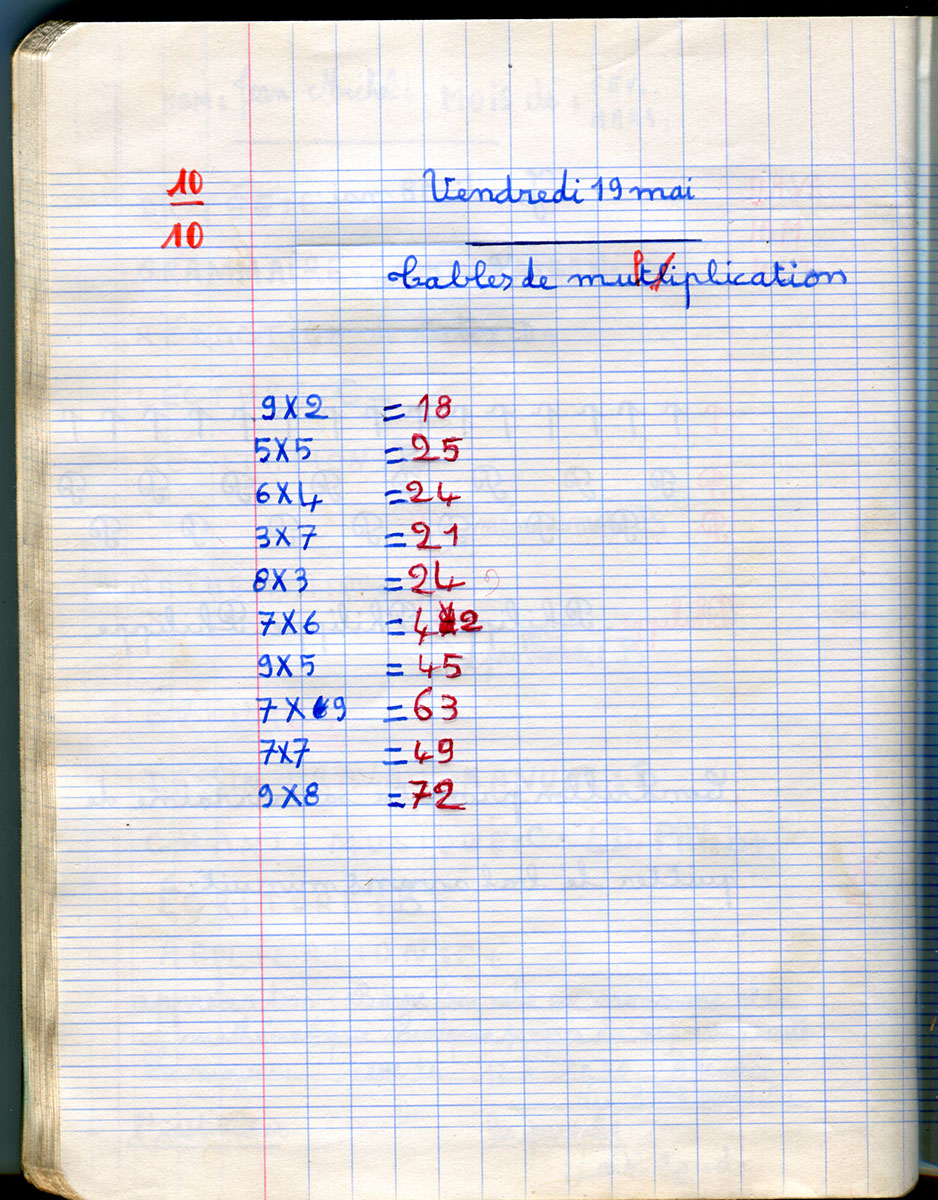 10
10
Vendredi 19 mai
tables de multiplication
9 X 2 = 18
5 X 5 = 25
6 X 4 = 24
3 X 7 = 21
8 X 3 = 24
7 X 6 = 42
9 X 5 = 45
7 X 9 = 63
7 X 7 = 49
9 X 8 = 72